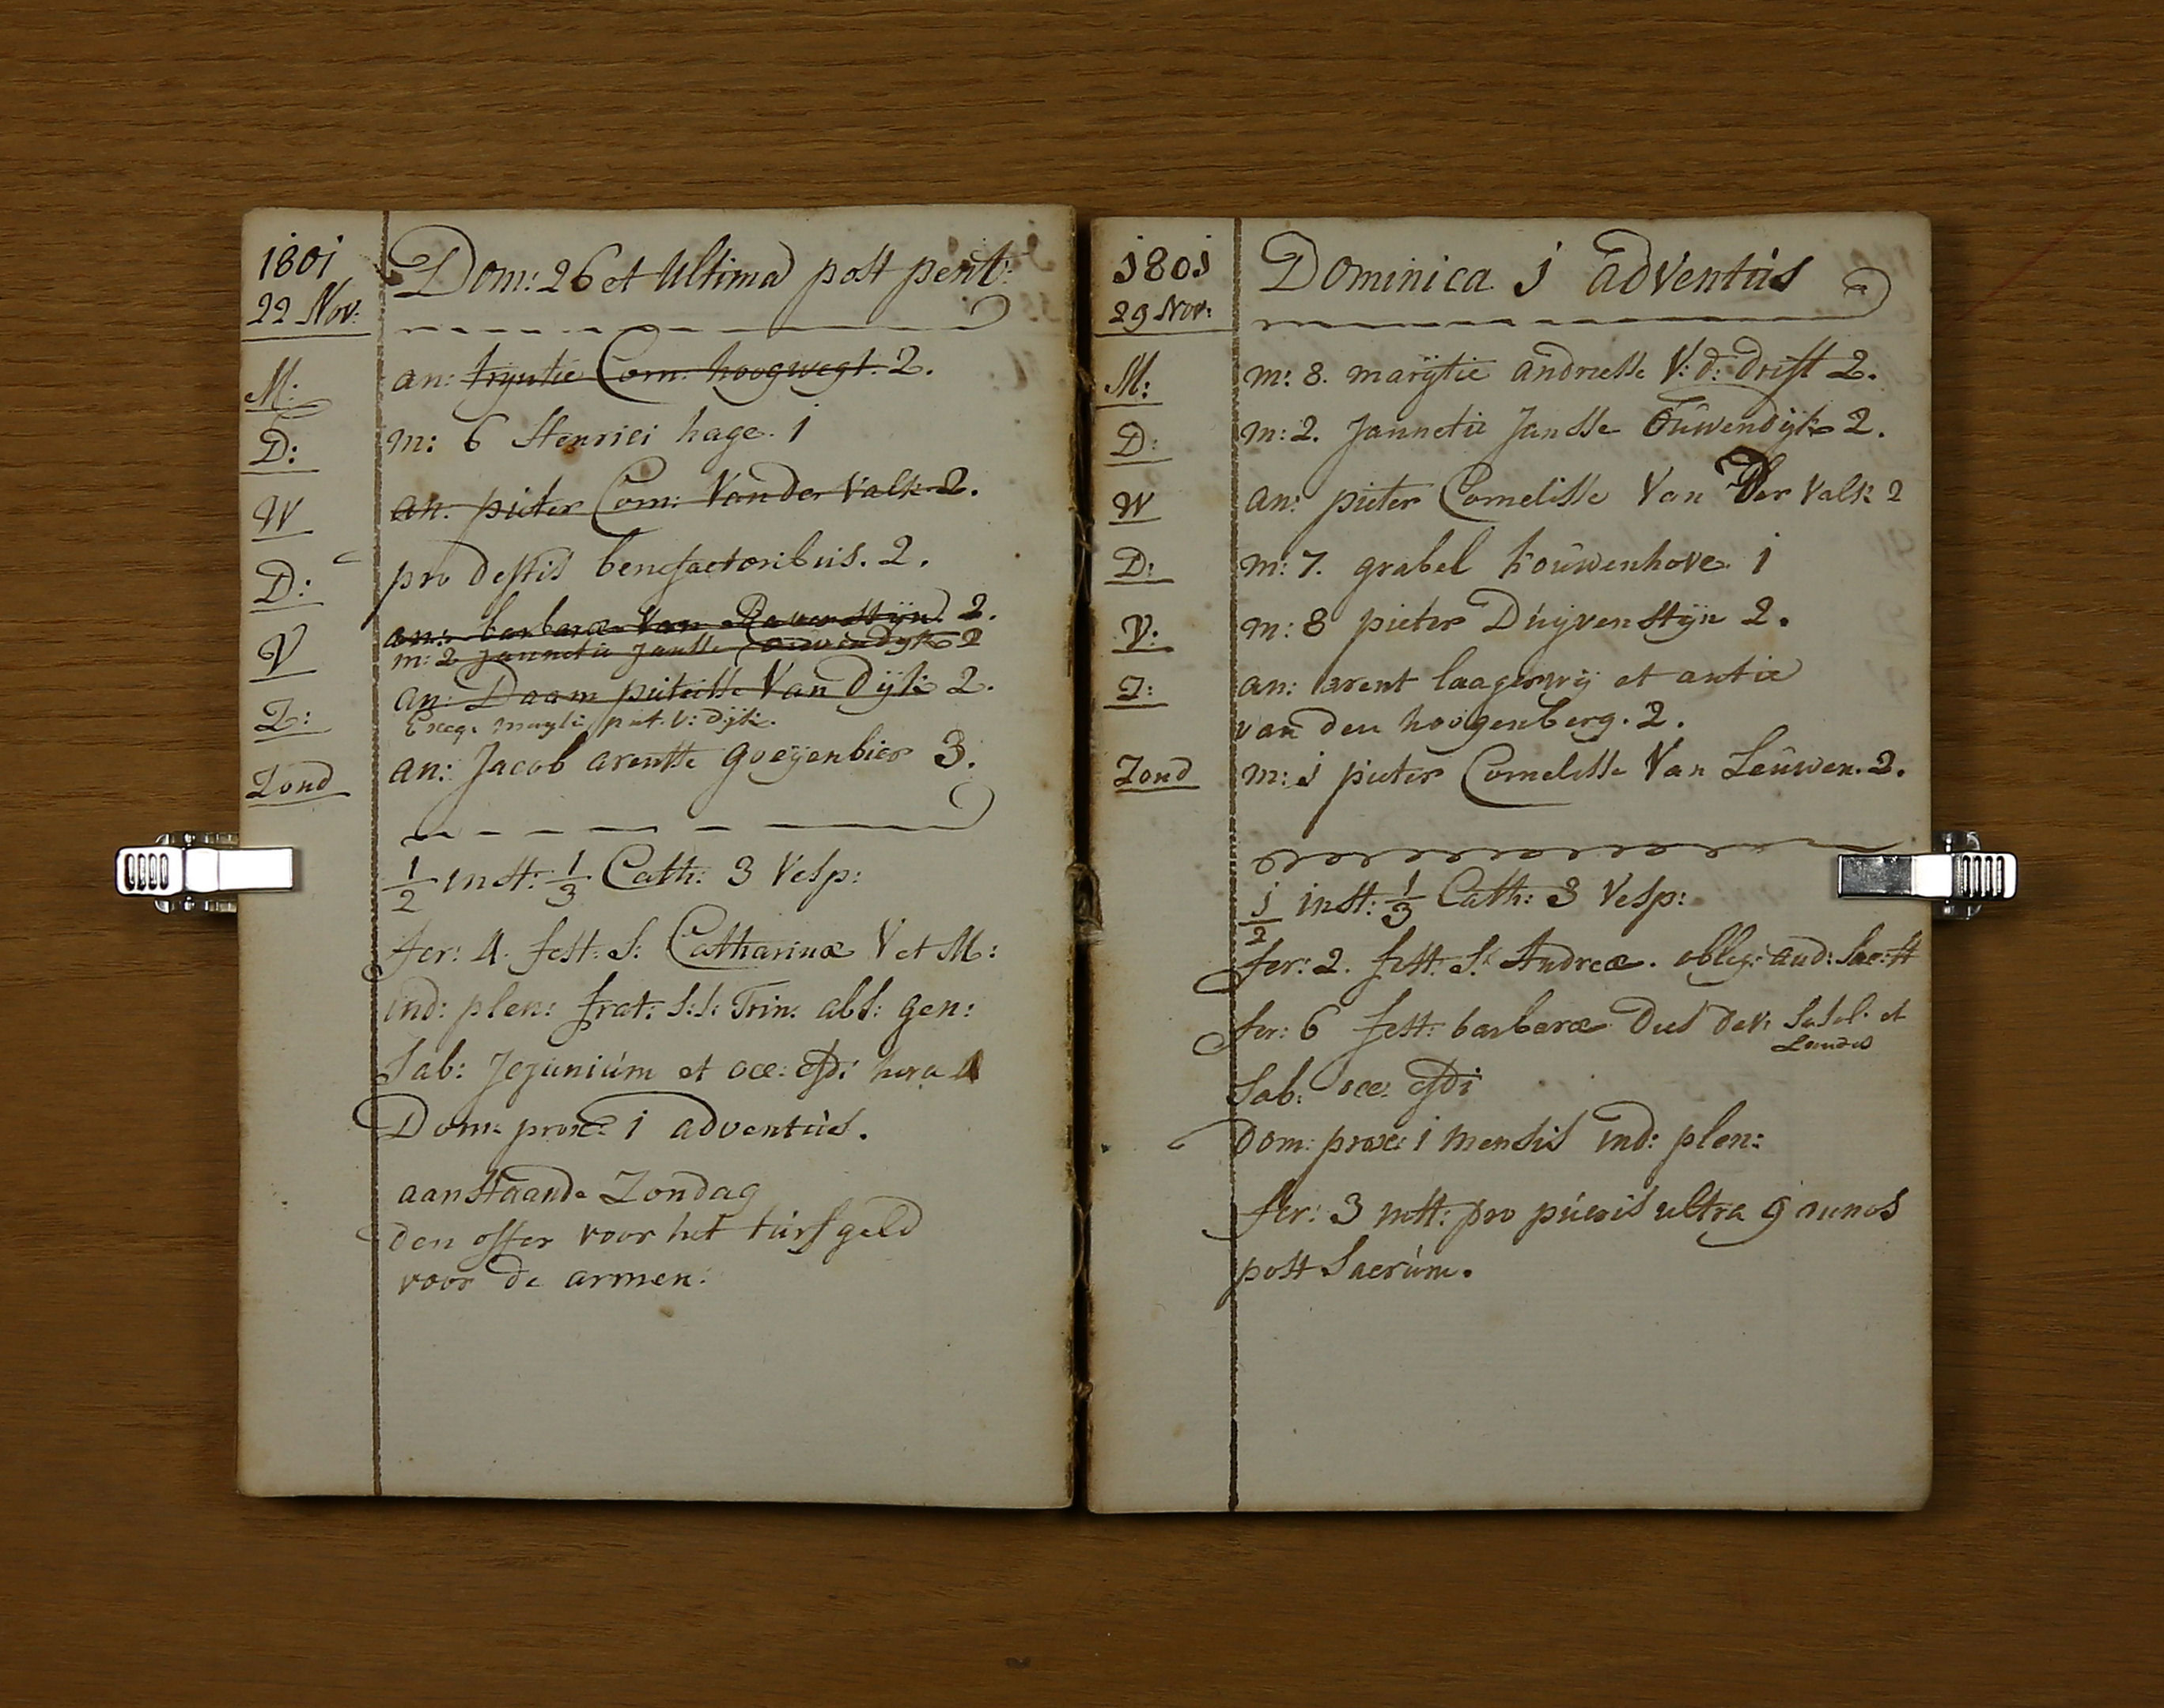 1801
22 Nov:
Dom: 26 et Ultima post pent:
M: an: tryntie Corn: hoogwegt. 2.
D: m: 6 Henrici hage. 1
W an: pieter Corn: Van der Valk 2.
D: pro deftis benefactoribus. 2.
V an: barbara Van Rauenstijn 2.
m: 2 Jannetie Jansse Ouwendijk 2
Z: an: Daam pieterisse Van Dijk 2.
Exeq: pet. V: Dijk.
Zond an: Jacob arentse goeijenbier 3.
1/2 inst: 1/3 Cath: 3 Vesp:
fer: 4. fest: S: Catharinæ V et M:
ind: plen: frat: S:S: Trin: abs: gen:
Sab: Jejunium et occ: hora 4
Dom: prox: 1 adventus.
aanstaande Zondag
den offer voor het turfgeld
voor de armen.
1801
29 Nov:
Dominica 1 adventus
M: m: 8. marijtie andriesse V: d: drift 2.
D: m: 2. Jannetie Jansse Ouwendijk 2.
W an: pieter Cornelisse Van Der Valk 2
D: m: 7. grabel kouwenhove 1
V: m: 8 pieter Duijvenstijn 2.
Z: an: arent laagerwij et antie
van den hoogenberg. 2.
Zond m: 1 pieter Cornelisse Van Leuwen. 2.
1/2 inst: 1/3 Cath: 3 Vesp:
fer: 2. fest: S: Andreæ. oblig: aud: Sac:
fer: 6 fest: barbaræ Dev: et
Laudes
Sab: occ:
Dom: prox: 1 mensis ind: plen:
fer: 3 inst: pro pueris ultra 9 annos
post Sacrum.